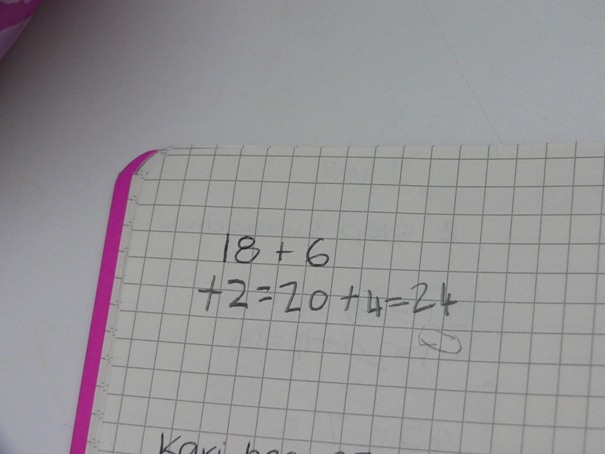 18 + 6
+2=20+4=24
Kari